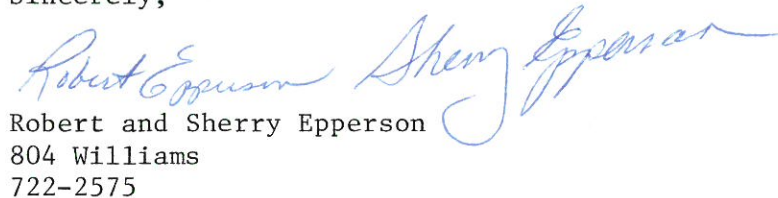 Sincerely,
Robert Epperson Sherry Epperson
Robert and Sherry Epperson
804 Williams
722-2575